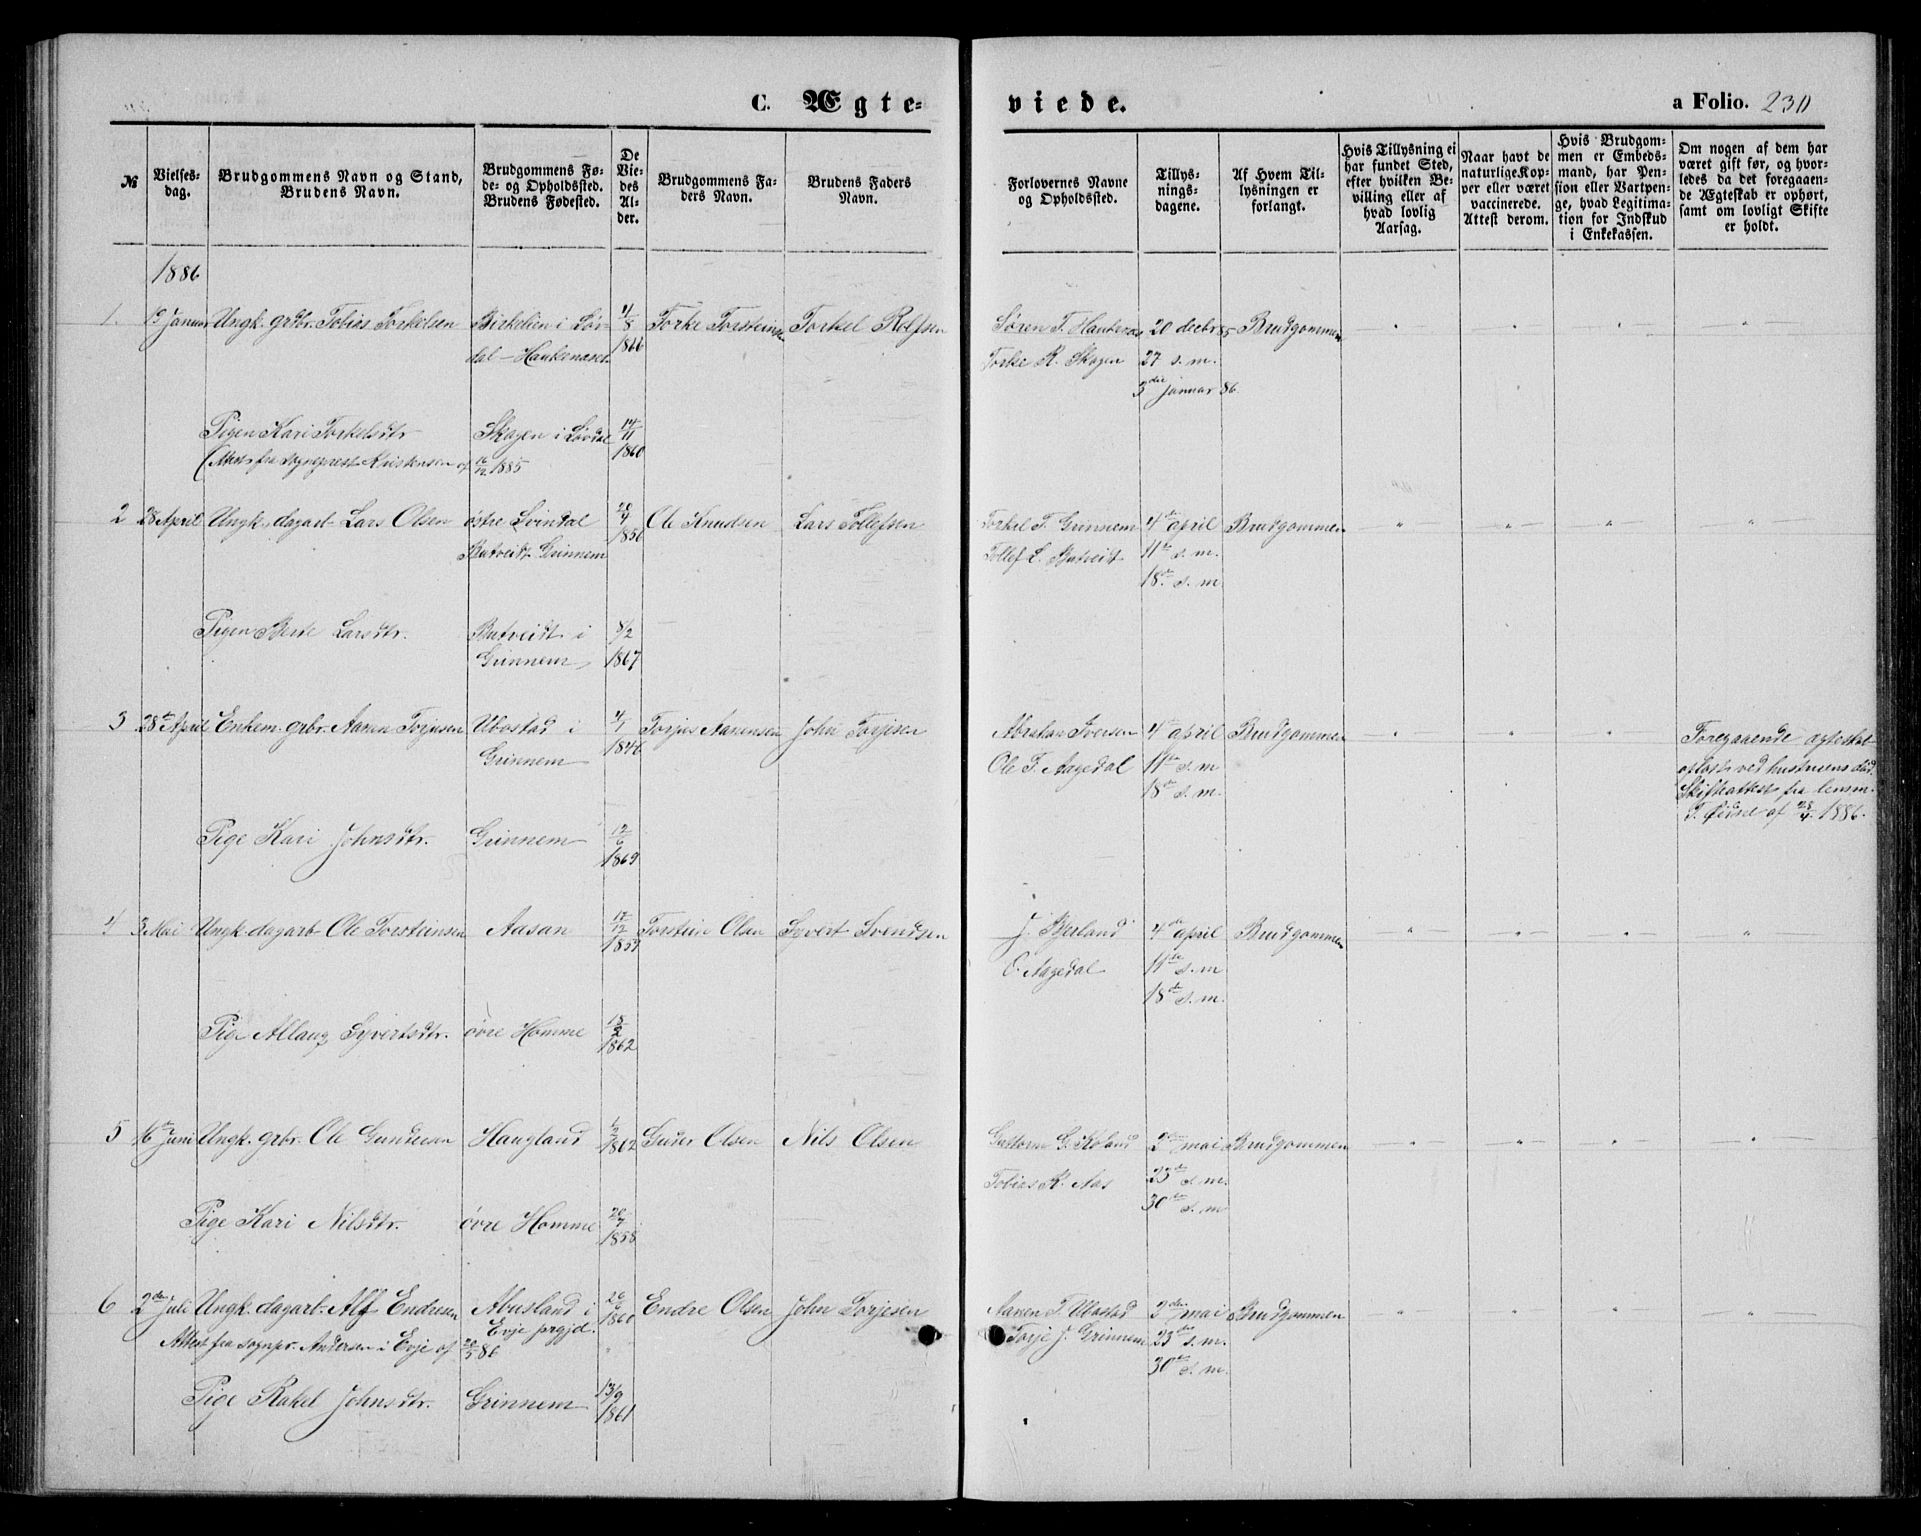 C. Ægte-
viede.
a Folio. 230
№
Vielses-
dag.
Brudgommens Navn og Stand,
Brudens Navn.
Brudgommens Fø-
de- og Opholdssted.
Brudens Fødested.
De
Vie-
des
Al-
der.
Brudgommens Fa-
ders Navn.
Brudens Faders
Navn.
Forlovernes Navne
og Opholdssted.
Tillys-
nings-
dagene.
Af Hvem Til-
lysningen er
forlangt.
Hvis Tillysning ei
har fundet Sted,
efter hvilken Be-
villing eller af
hvad lovlig
Aarsag.
Naar havt de
naturlige Kop-
per eller været
vaccinerede.
Attest derom.
Hvis Brudgom-
men er Embeds-
mand, har Pen-
sion eller Vartpen-
ge, hvad Legitima-
tion for Indskud
i Enkekassen.
Om nogen af dem har
været gift før, og hvor-
ledes da det foregaaen-
de Ægteskab er ophørt,
samt om lovligt Skifte
er holdt.
1886
1. Januar Ungk. grdbr. Tobias Torkelsen Birkelien i Løv- 4/8 Torke Torsteinsen Torkel Rolfsen Søren T. 20 decbr 85 Brudgommen
dal - 1866 Torke R. Skagen 27 s. m.
3die januar 86.
Pigen Kari Torkelsdtr Skagen i Løvdal 14/11
(Attest fra sogneprest Kristensen af 1885 1860
2 28 April Ungk. dagarb. Lars Olsen østre Svindal Ole Knudsen Lars Tollefsen Torkel T. Grinnem 4de april Brudgommen
Butveidt Grinnem 1856 Tollef L. Butveidt 11te s. m.
18de s. m.
Pigen Berte Larsdtr. Butveidt i 8/2
Grinnem 1867
3 28de April Enkem. grbr. Aanen Torjusen Ubostad i 4/1 Torjus Aanensen John Torjesen Abraham Iversen 4de april Brudgommen Foregaaende ægteskab
Grinnem 1846 Ole T. Aagedal 11te s. m. opløst ved hustruens død
18de s. m. Skifteattest fra lensm.
af 28/4 1886.
Pige Kari Johnsdtr. Grinnem 12/6
1869
4 3 Mai Ungk. dagarb. Ole Torsteinsen Aasan 17/12 Torstein Olsen Syvert Svendsen J. Byrland 4de april Brudgommen
1859 O. Aagedal 11te s. m.
18de s. m.
Pige Allaug Syvertsdtr. øvre Homme 18/2
1862
5 16de Juni Ungk. grbr. Ole Gundersen Haugland 1862 Guner Olsen Nils Olsen Guttorm G. 2den mai Brudgommen
Tobias R. Aas 23de s. m.
30te s. m.
Pige Kari Nilsdtr. øvre Homme 20/7
1858
6 2den Juli Ungk. dagarb. Alf Endresen Abusland i 1860 Endre Olsen John Torjesen Aanen T. Ubostad 2den mai Brudgommen
Evje prgjd. Torje J. Grinnem 23de s. m.
Attest fra sognpr. Andersen i Evje af 20/5 86 30te s. m.
Pige Rakel Johnsdtr. Grinnem 13/9
1861